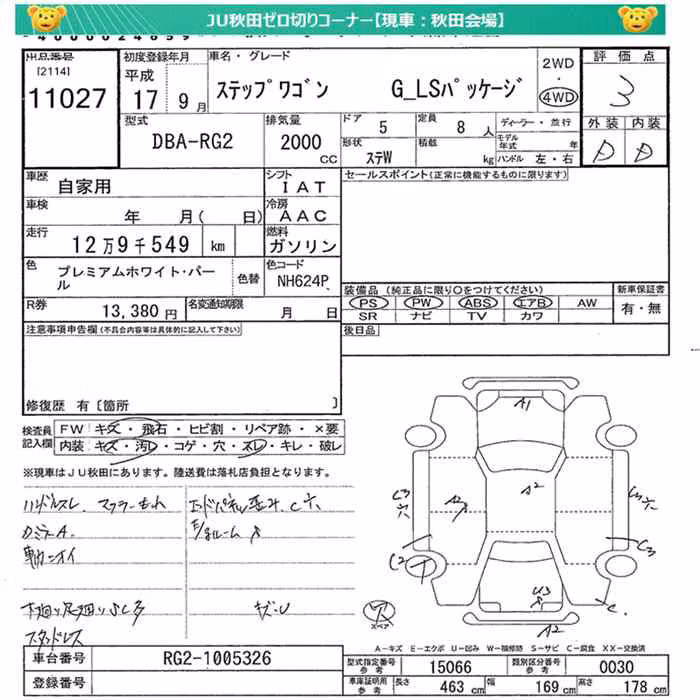 JU秋田ゼロ切りコーナー【現車：秋田会場】
出品番号
[2114]
11027
初度登録年月
平成
17 9月
車名・グレード
ステップワゴン G_LSパッケージ
2WD
・
4WD
評価点
3
外装 内装
D D
型式
DBA-RG2
排気量
2000
cc
ドア 5
定員 8 人
形状 ステW
積載 kg
ディーラー・並行
モデル年式 年
ハンドル 左・右
車歴
自家用
シフト
IAT
車検
年 月( 日)
冷房
AAC
走行
12万9千549 km
燃料
ガソリン
色
プレミアムホワイト・パール
色替
色コード
NH624P
R券
13,380 円
名変通知期限
月 日
セールスポイント(正常に機能するものに限ります)
装備品 (純正品に限り○をつけてください)
PS PW ABS エアB AW
SR ナビ TV カワ
新車保証書
有・無
後日品
注意事項申告欄(不具合内容等は具体的に記入して下さい)
修復歴 有〔箇所 〕
検査員
記入欄
FW キズ・飛石・ヒビ割・リペア跡・×要
内装 キズ・汚レ・コゲ・穴・スレ・キレ・破レ
※現車はJU秋田にあります。陸送費は落札店負担となります。
ハンドルスレ、マフラーもれ
カミラーA.
車内ニオイ
下廻り足廻りSC多
スタッドレス
エンドパネル歪み、C穴
キズ・U
A1
A2
A2
C3
穴
C3穴
C2
C3
C
U3
A2
ス
スペア
A－キズ E－エクボ U－凹み W－補修跡 S－サビ C－腐食 XX－交換済
車台番号
RG2-1005326
登録番号
型式指定番号
参考
15066
類別区分番号
参考
0030
車庫証明用
参考
長さ 463 cm
幅 169 cm
高さ 178 cm